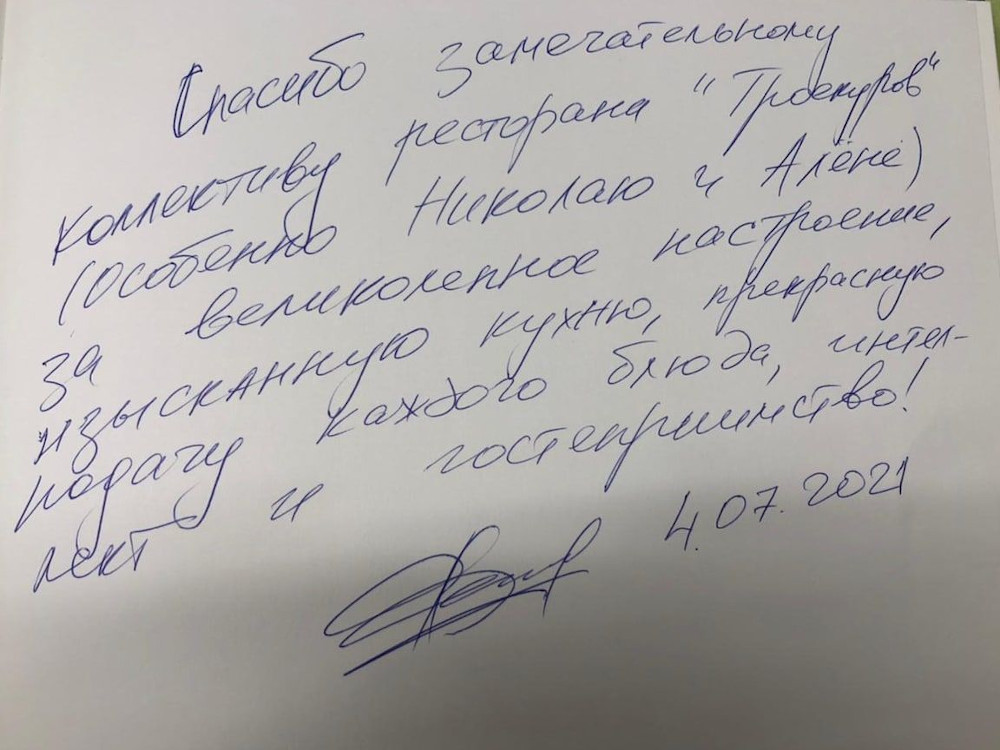 Спасибо замечательному
коллективу ресторана "Троекуров"
(особенно Николаю и Алёне)
за великолепное настроение,
изысканную кухню, прекрасную
подачу каждого блюда, интел-
лект и гостеприимство!
4.07.2021